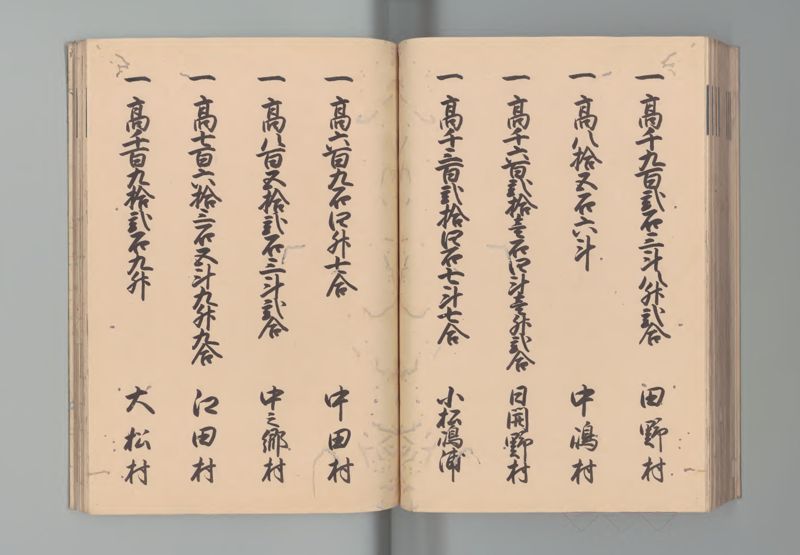 一 高千九百弐石三斗八升弐合 田野村
一 高八拾五石六斗 中嶋村
一 高千六百弐拾壱石四斗壱升弐合 日開野村
一 高千三百弐拾四石七斗七合 小松嶋浦
一 高六百九石四升七合 中田村
一 高八百五拾弐石三斗弐合 中之郷村
一 高七百六拾三石五斗九升九合 江田村
一 高千百九拾弐石九升 大松村